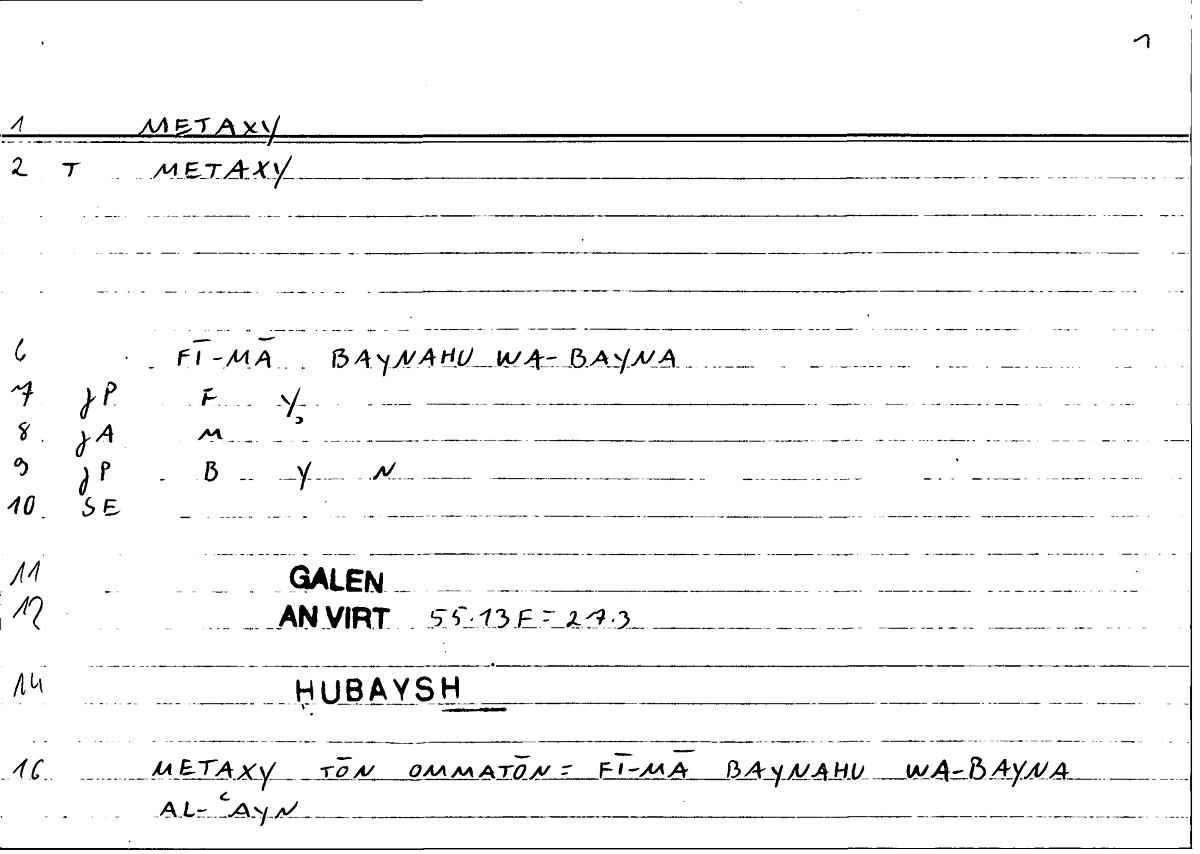 1
1 METAXY
2 T METAXY
6 FĪ-MĀ BAYNAHU WA-BAYNA
7 JP F Y,
8 JA M
9 JP B Y N
10 SE
11 GALEN
12 AN VIRT 55.13F = 27.3
14 ḤUBAYSH
16 METAXY TŌN OMMATŌN = FĪ-MĀ BAYNAHU WA-BAYNA
AL-ʿAYN